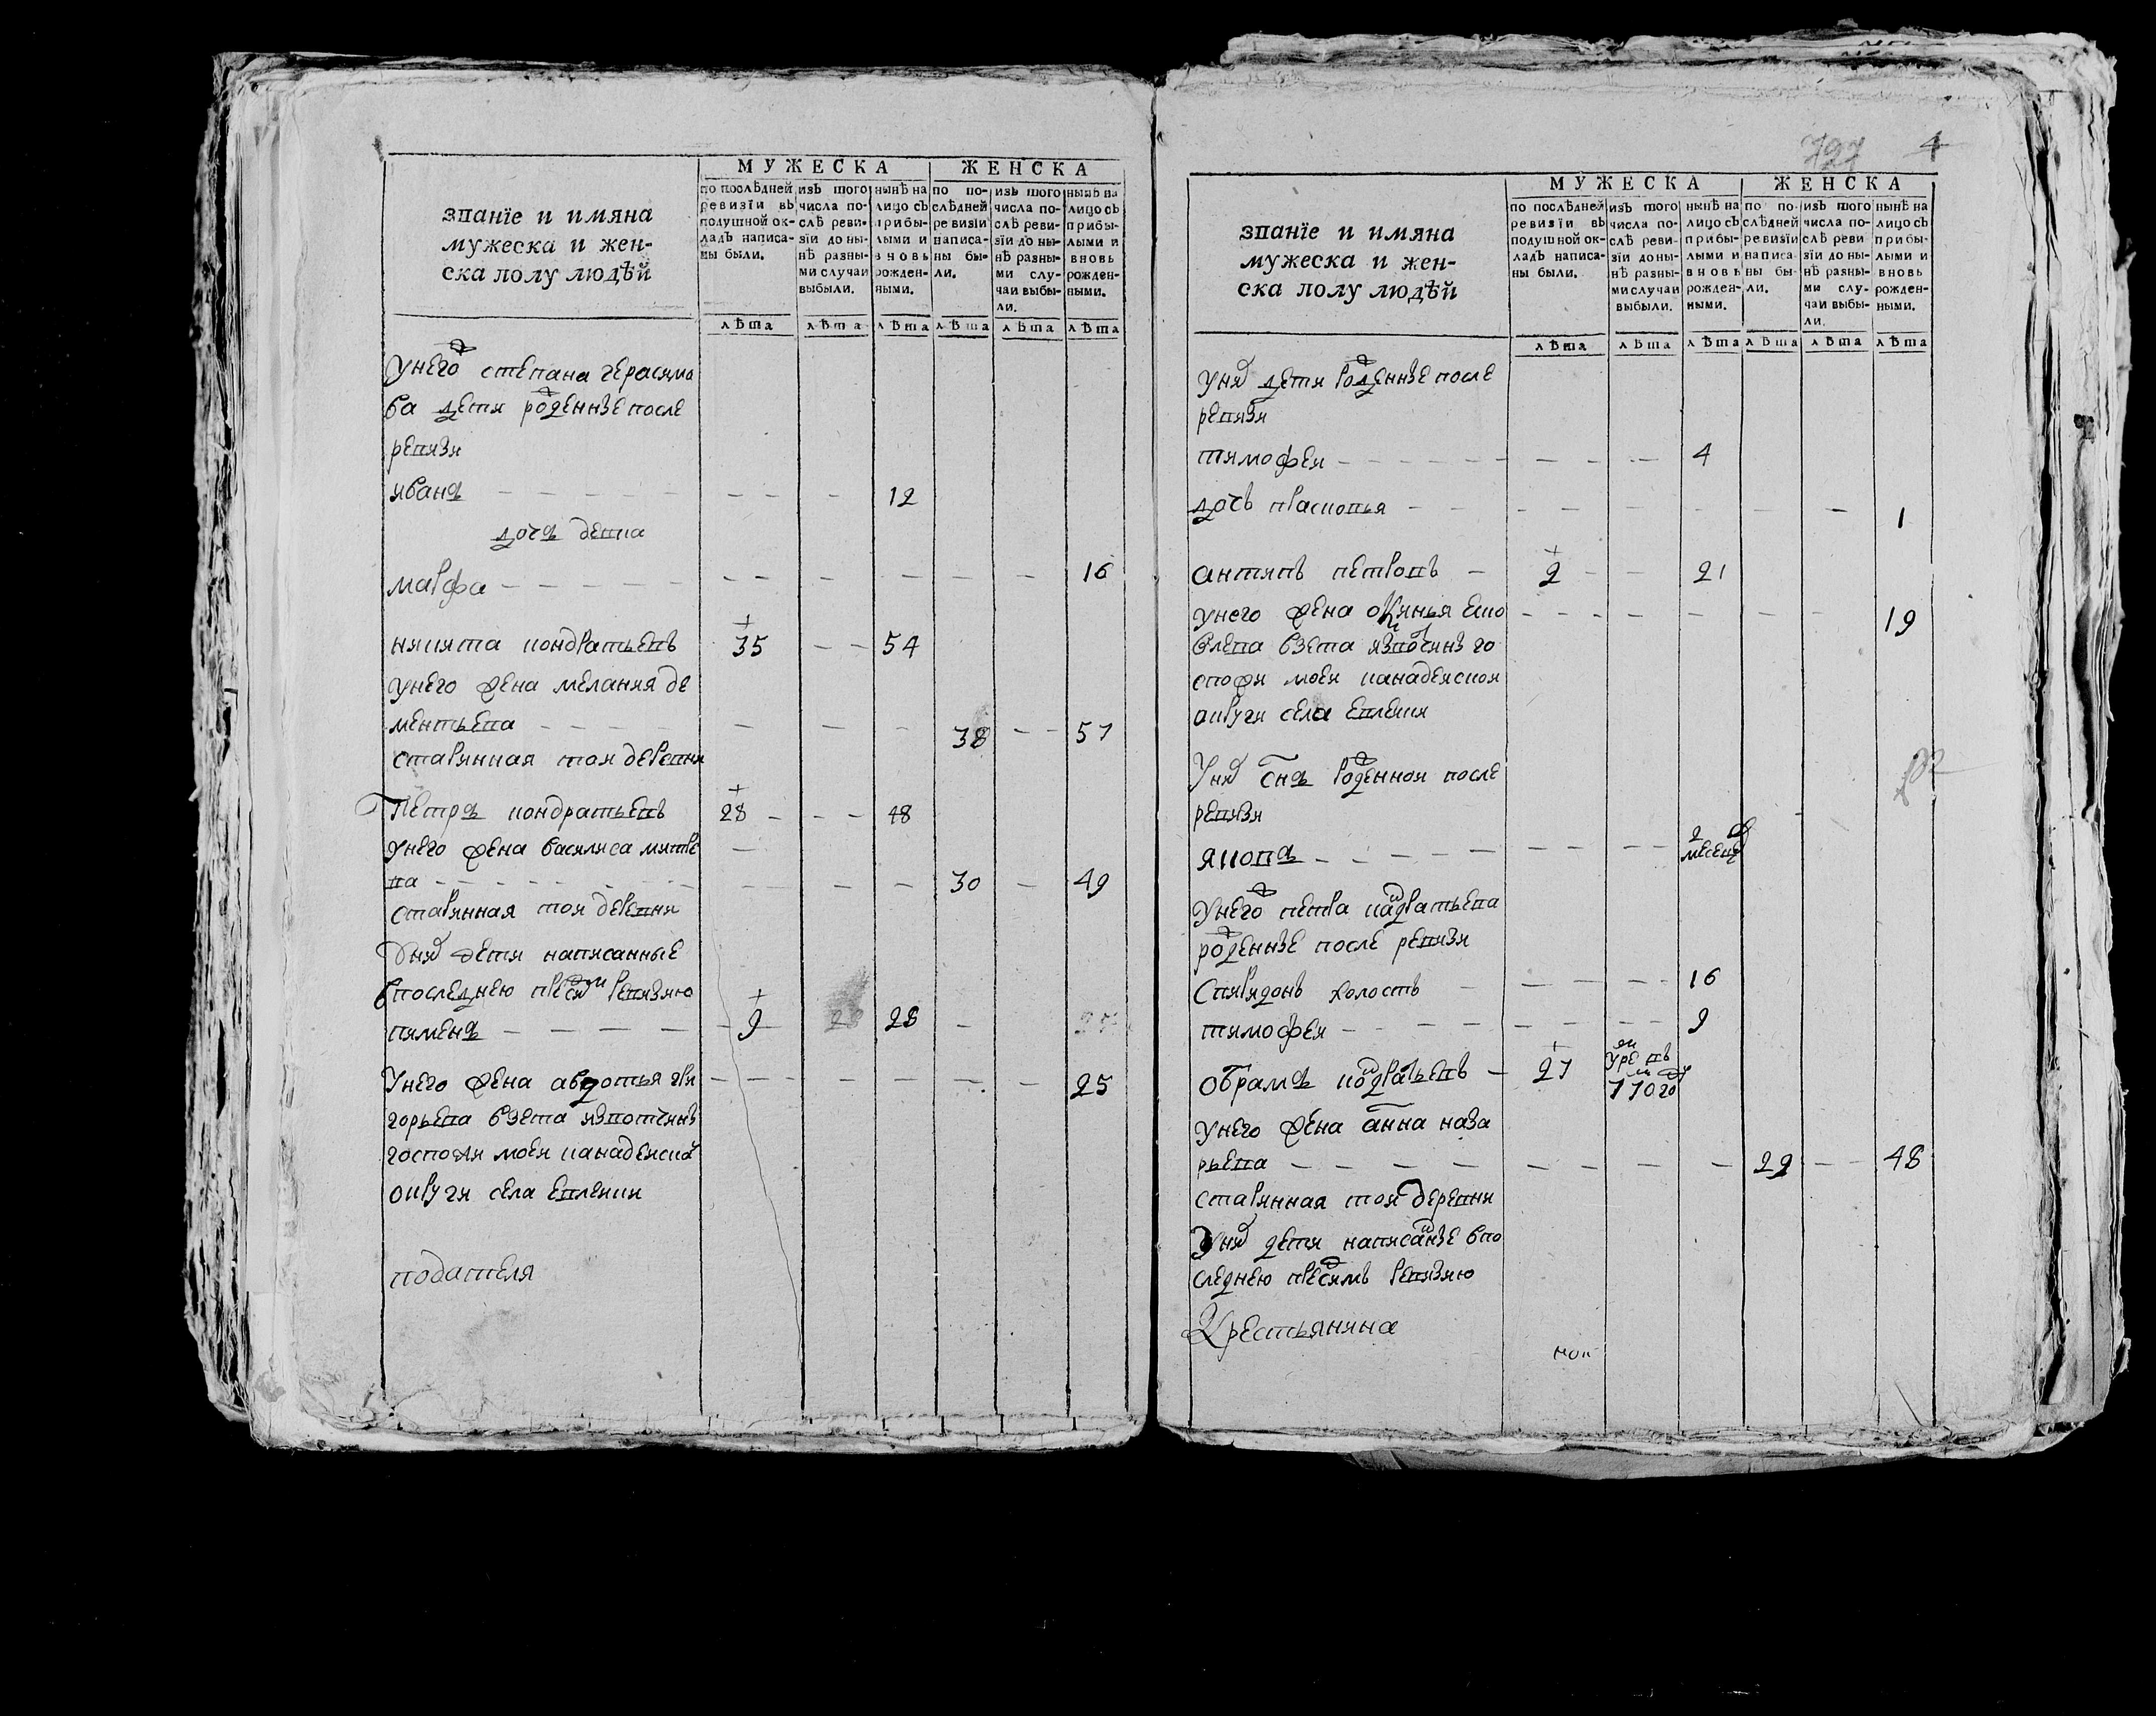 МУЖЕСКА ЖЕНСКА
званїе и имяна
мужеска и жен-
ска полу людѣй
по послѣдней
ревизїи въ
подушной ок-
ладъ написа-
ны были.
изъ того
числа по-
слѣ реви-
зїи до ны-
нѣ разны-
ми случаи
выбыли.
нынѣ на
лицо съ
прибы-
лыми и
вновь
рожден-
ными.
по по-
слѣдней
ревизїи
написа-
ны бы-
ли.
изъ того
числа по-
слѣ реви-
зїи до ны-
нѣ разны-
ми слу-
чаи выбы-
ли.
нынѣ на
лицо съ
прибы-
лыми и
вновь
рожден-
ными.
лѣта лѣта лѣта лѣта лѣта лѣта
унего степана герасимо
ва дети роженные после
ревизи
иванъ 12
дочь девка
марфа 16
никита кондратьевъ 35 54
унего жена мелания де
ментьева 38 57
старинная тои деревни
Петръ кондратьевъ 28 48
унего жена василиса митре
ва 30 49
старинная тои деревни
Уних дети написанные
впоследнею пред сим ревизию
пименъ 9 28
Унего жена авдотья гри
горьева взета извотчины
господи моеи канадеиской
округи села евлеики
подателя
727 4
МУЖЕСКА ЖЕНСКА
званїе и имяна
мужеска и жен-
ска полу людѣй
по послѣдней
ревизїи въ
подушной ок-
ладъ написа-
ны были.
изъ того
числа по-
слѣ реви-
зїи до ны-
нѣ разны-
ми случаи
выбыли.
нынѣ на
лицо съ
прибы-
лыми и
вновь
рожден-
ными.
по по-
слѣдней
ревизїи
написа-
ны бы-
ли.
изъ того
числа по-
слѣ реви
зїи до ны-
нѣ разны-
ми слу-
чаи выбы-
ли.
нынѣ на
лицо съ
прибы-
лыми и
вновь
рожден-
ными.
лѣта лѣта лѣта лѣта лѣта лѣта
уних дети роженные после
ревизи
тимофеи 4
дочь прасковья 1
антипъ петровъ 2 21
унего жена 19
взета извотчины го
спожи моеи канадеискои
округи села евлеики
Уних сынъ роженнои после
ревизи
яковъ 2 месеца
Унего петра кондратьева
роженные после ревизи
Спиридонъ холостъ 16
тимофеи 9
обрамъ кондратьевъ 27
унего жена анна наза
рьева 29 48
старинная тои деревни
Уних дети написанные впо
следнею пред симъ ревизию
Крестьянина